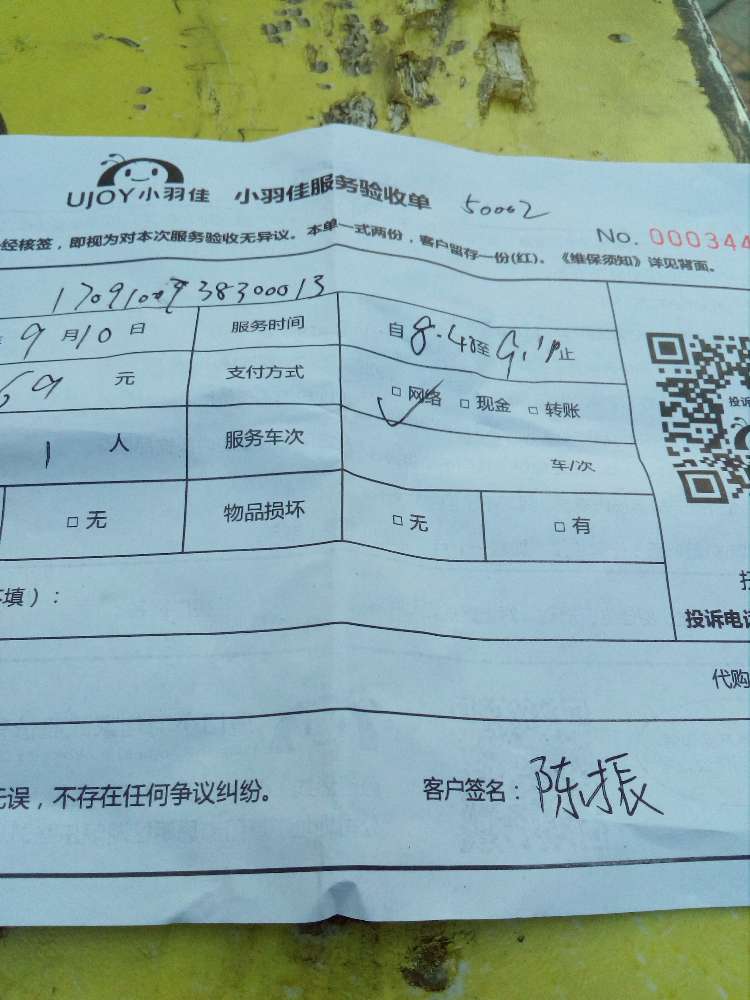 UJOY小羽佳 小羽佳服务验收单 50002
No. 000344
经核签，即视为对本次服务验收无异议。本单一式两份，客户留存一份(红)。《维保须知》详见背面。
9月10日 服务时间 自8.40至 止
69元 支付方式 □网络 □现金 □转账
1人 服务车次 车/次
□无 物品损坏 □无 □有
填）：
投诉电话
代购
无误，不存在任何争议纠纷。 客户签名：陈振